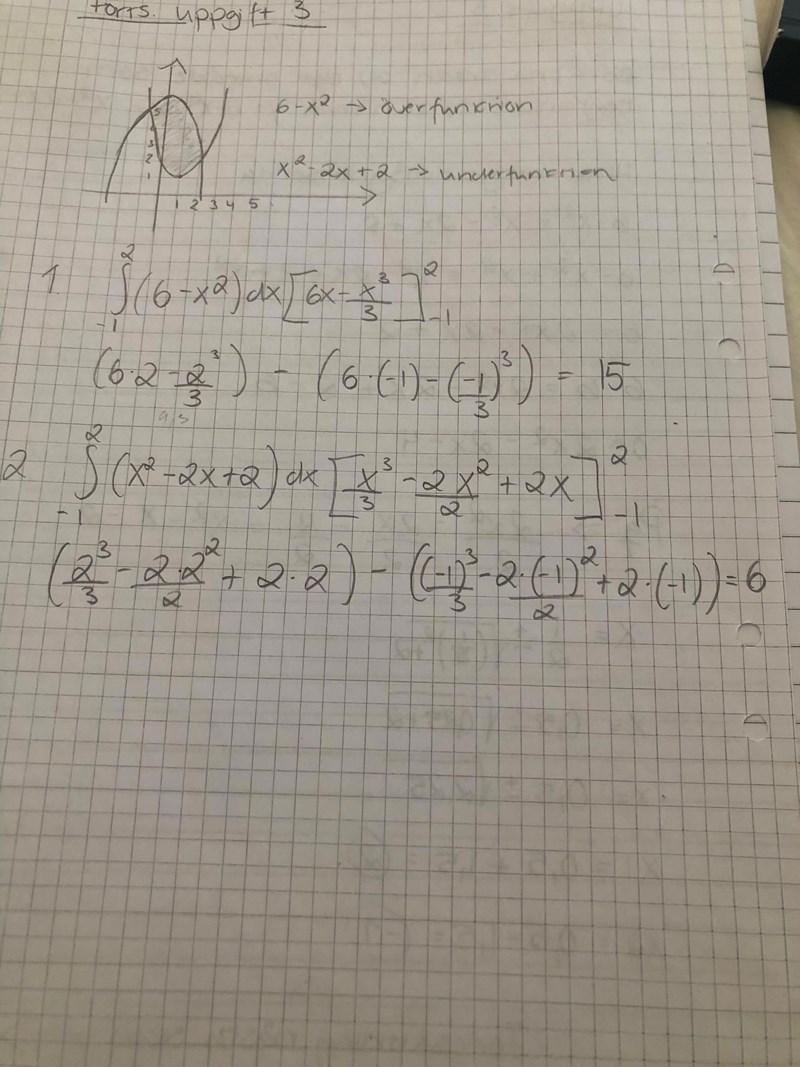 forts. uppgift 3
6-x² → överfunktion
x²-2x+2 → underfunktion
5
3
2
1
1 2 3 4 5
1. ∫₋₁² (6-x²)dx [6x - x³/3]₋₁²
(6·2 - 2³/3) - (6·(-1) - (-1)³/3) = 15
2 ∫₋₁² (x²-2x+2)dx [x³/3 - 2x²/2 + 2x]₋₁²
(2³/3 - 2·2²/2 + 2·2) - ((-1)³/3 - 2·(-1)²/2 + 2·(-1)) = 6